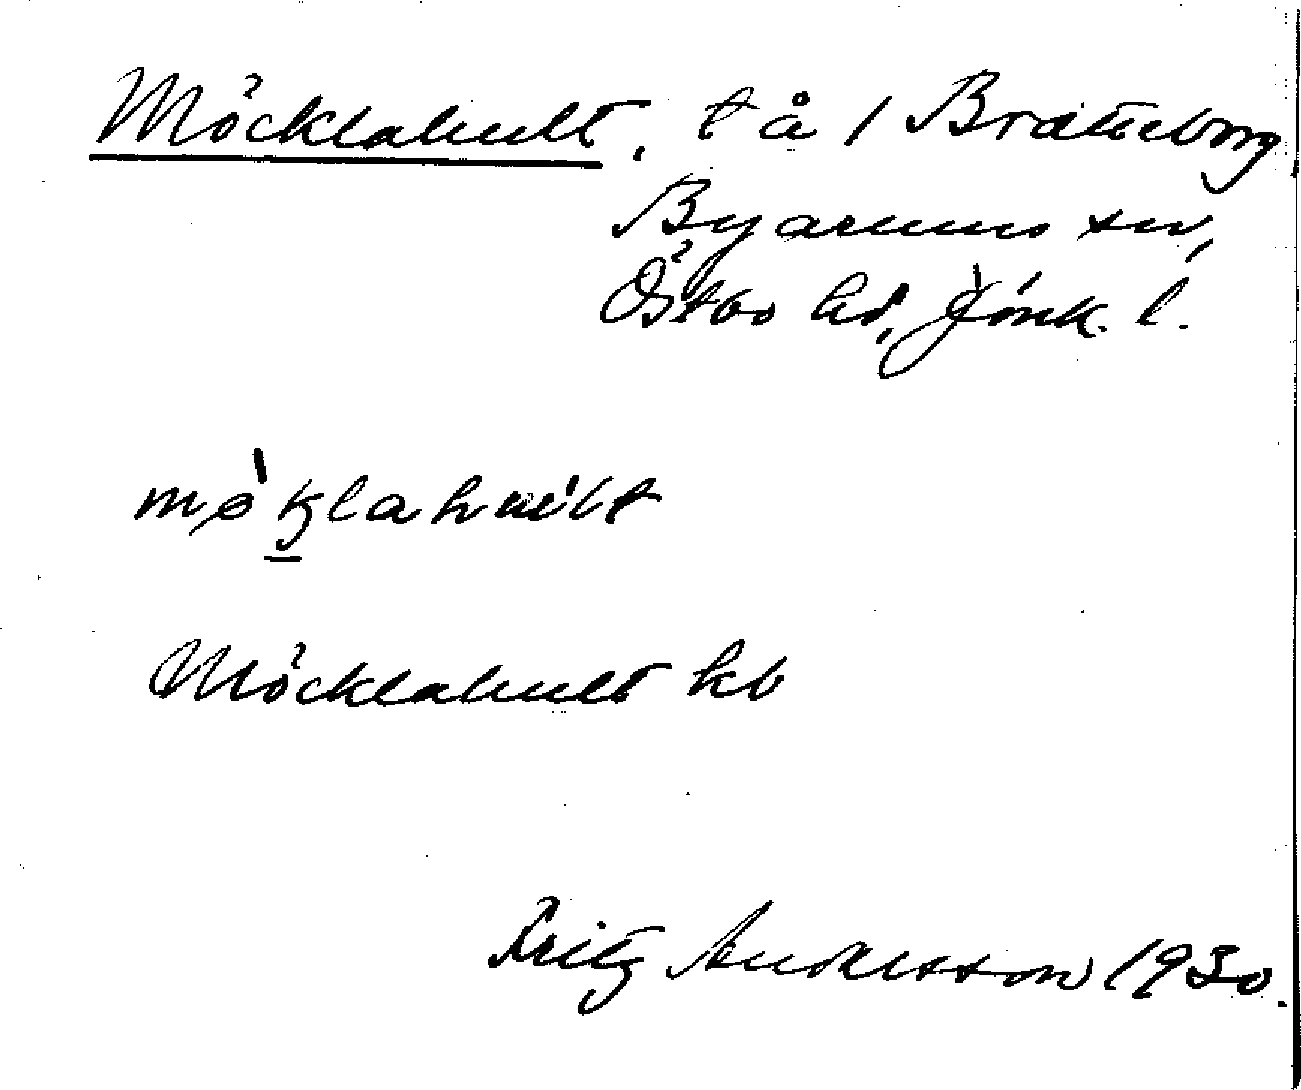 Möcklahult, t å / Bratteborg,
Byarums sn,
Östbo hd, Jönk. l.
mø̀klahult
Möcklahult kb
Fritz Andersson 1930.